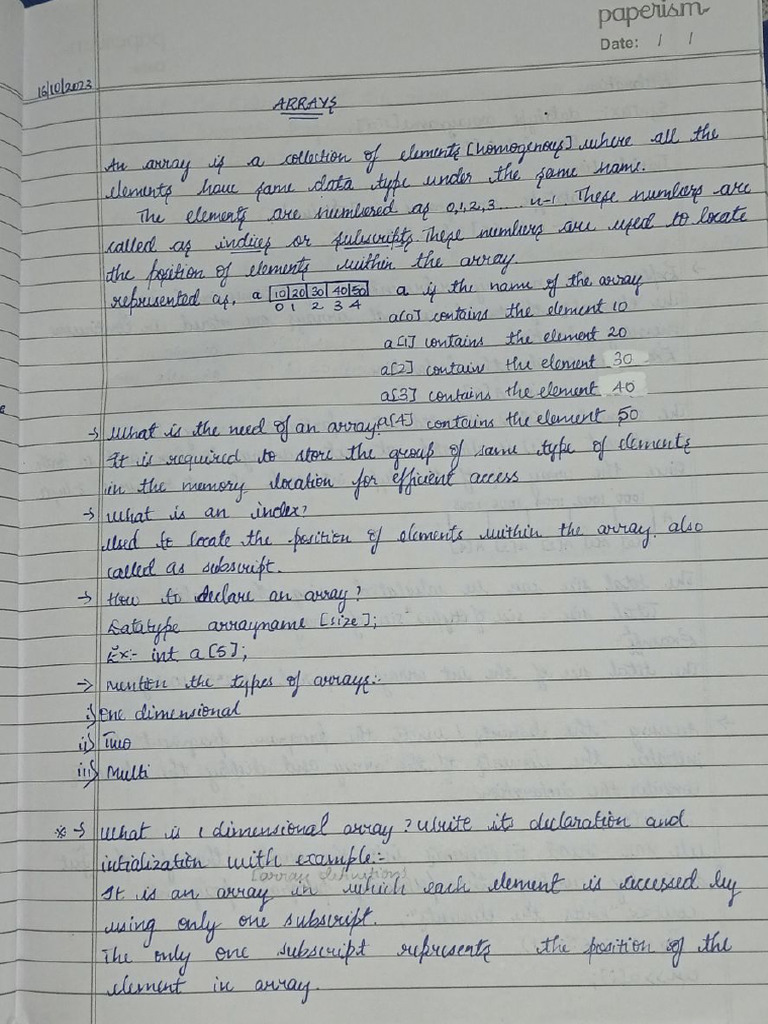 paperism
Date: / /
16/10/2023
ARRAYS
An array is a collection of elements [homogenous] where all the
elements have same data type under the same name.
The elements are numbered as 0,1,2,3.... n-1 These numbers are
called as indices or subscripts. These numbers are used to locate
the position of elements within the array.
represented as, a 10 20 30 40 50 a is the name of the array
0 1 2 3 4 a[0] contains the element 10
a[1] contains the element 20
a[2] contains the element 30
a[3] contains the element 40
→ What is the need of an array? a[4] contains the element 50
It is required to store the group of same type of elements
in the memory location for efficient access
→ What is an index?
Used to locate the position of elements within the array. also
called as subscript.
→ How to declare an array?
Datatype arrayname [size];
Ex:- int a[5];
→ Mention the types of arrays:-
i) One dimensional
ii) Two
iii) Multi
* → What is 1 dimensional array? Write its declaration and
intialization with example:-
[array definition]
It is an array in which each element is accessed by
using only one subscript.
The only one subscript represents the position of the
element in array.